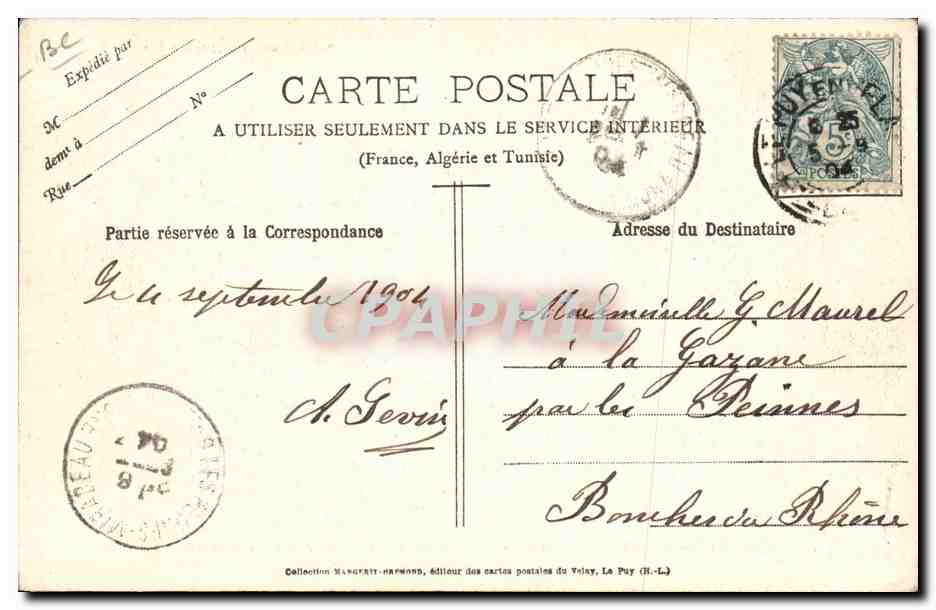 BC
Expédié par
M
demt à
Rue N°
CARTE POSTALE
A UTILISER SEULEMENT DANS LE SERVICE INTÉRIEUR
(France, Algérie et Tunisie)
LE PUY EN VELAY
5
POSTES
04
Partie réservée à la Correspondance
Adresse du Destinataire
septembre 1904
CPAPHIL
A. Gevin
Mademoiselle G. Maurel
à la Gazane
par les Peinnes
Bouches du Rhône
MIRABEAU
04
8
Collection MARGERIT-BREMOND, éditeur des cartes postales du Velay, Le Puy (H.-L.)